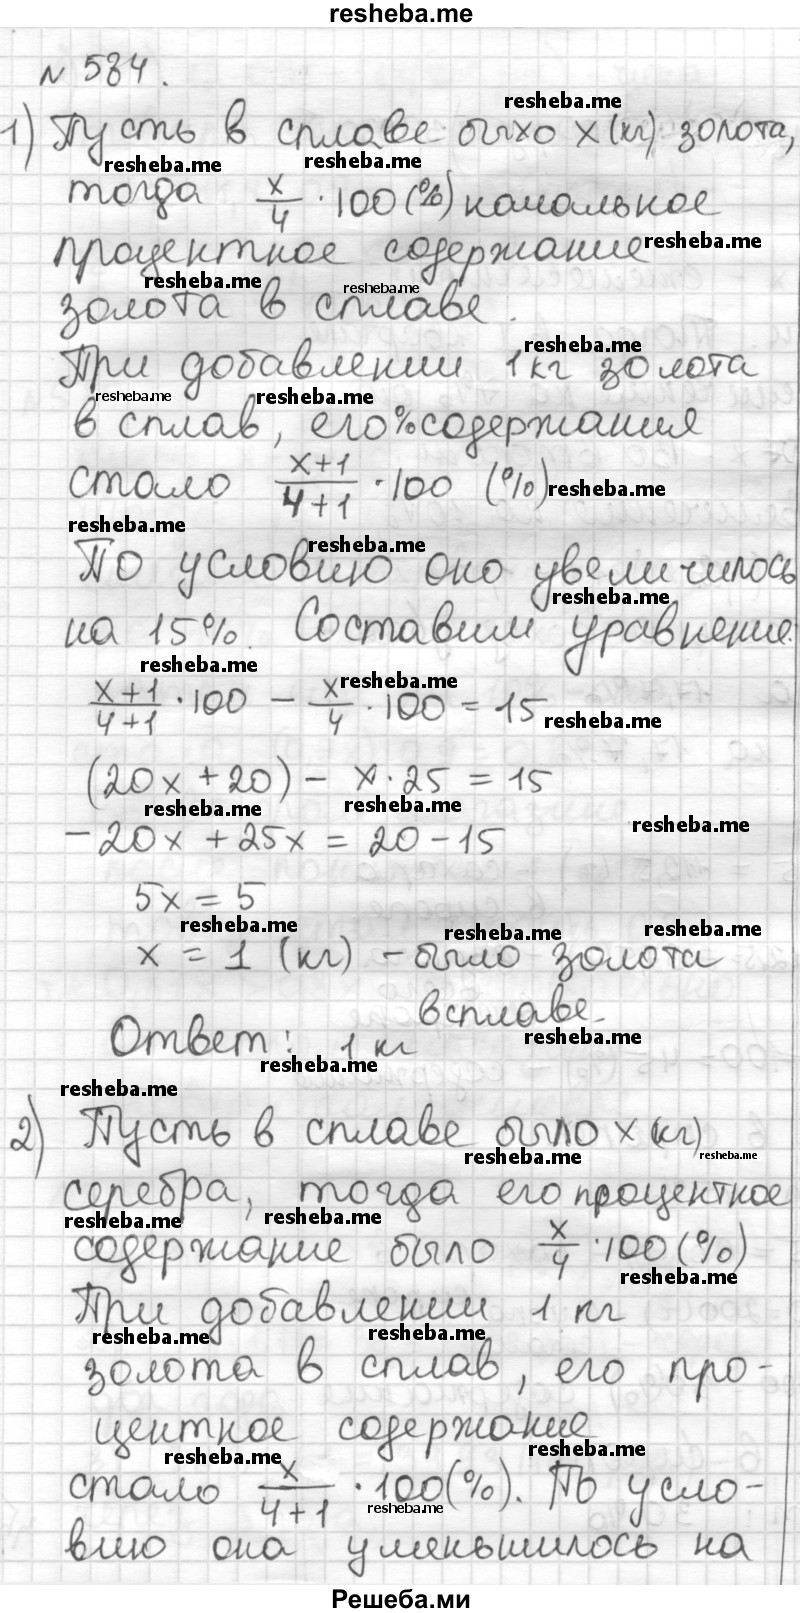 resheba.me
N 584.
resheba.me
1) Пусть в сплаве было x (кг) золота,
resheba.me resheba.me
тогда x/4 · 100 (%) начальное
процентное содержание resheba.me
resheba.me resheba.me
золота в сплаве.
resheba.me
При добавлении 1 кг золота
resheba.me resheba.me
в сплав, его % содержания
стало (x+1)/(4+1) · 100 (%) resheba.me
resheba.me
resheba.me
По условию оно увеличилось
resheba.me
на 15%. Составим уравнение:
resheba.me resheba.me
(x+1)/(4+1) · 100 − x/4 · 100 = 15
resheba.me
(20x + 20) − x · 25 = 15
resheba.me resheba.me
resheba.me
−20x + 25x = 20 − 15
5x = 5
resheba.me resheba.me resheba.me
x = 1 (кг) − было золота
в сплаве.
Ответ: 1 кг
resheba.me
resheba.me
resheba.me
2) Пусть в сплаве было x (кг)
resheba.me resheba.me
серебра, тогда его процентное
resheba.me resheba.me
содержание было x/4 · 100 (%)
resheba.me
При добавлении 1 кг
resheba.me resheba.me
золота в сплав, его про-
центное содержание
resheba.me resheba.me
стало x/(4+1) · 100 (%). По усло-
resheba.me
вию она уменьшилось на
Решеба.ми